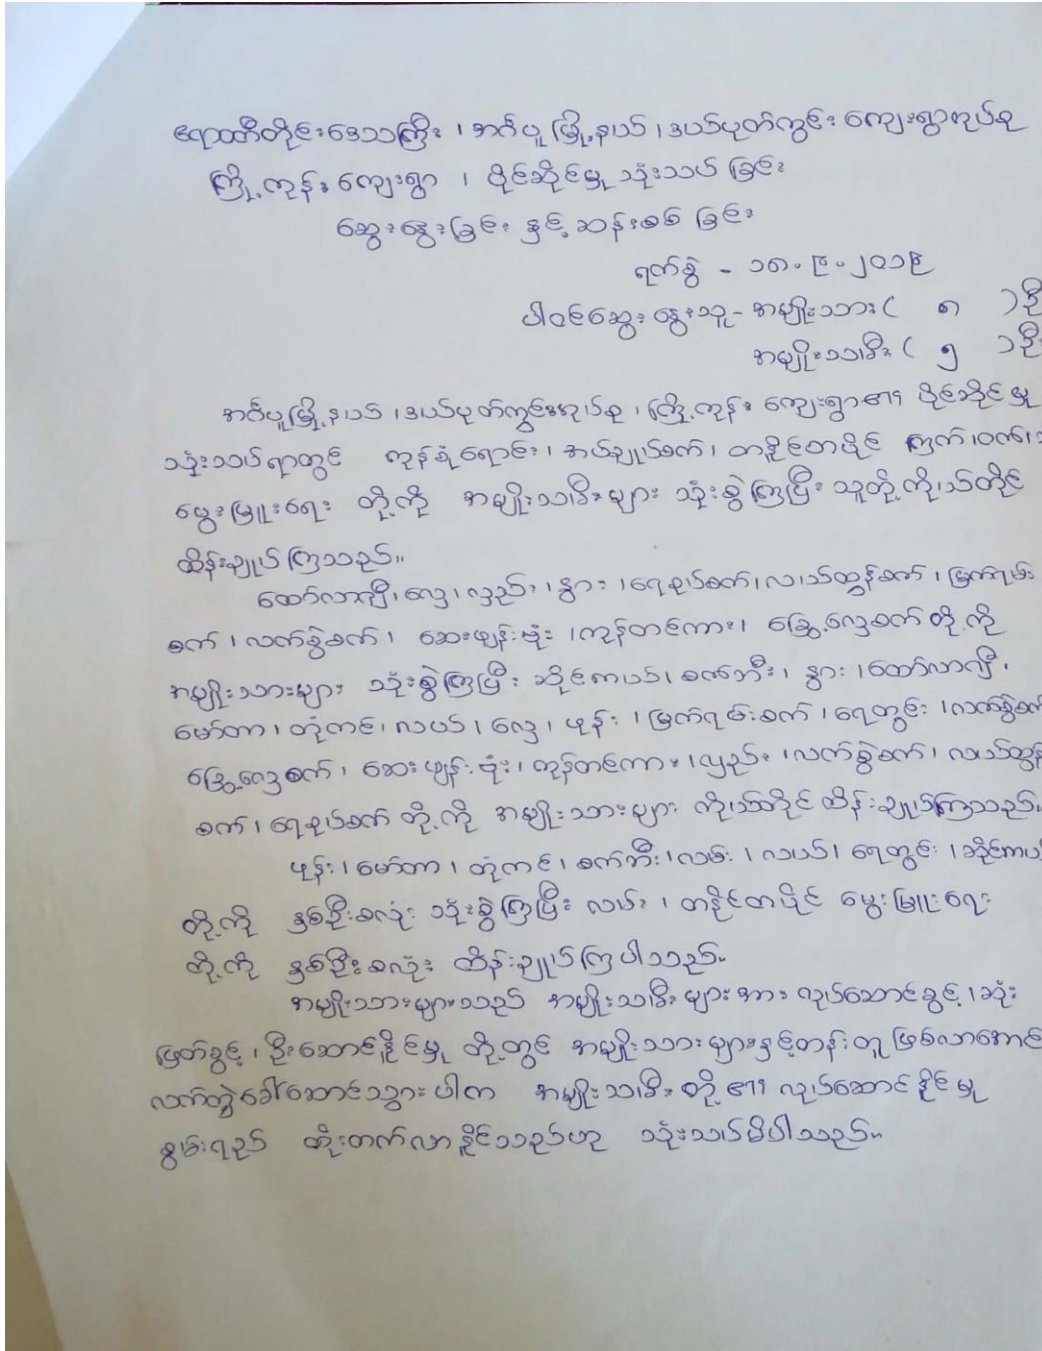 ဧရာဝတီတိုင်းဒေသကြီး ၊ အင်္ဂပူမြို့နယ် ၊ ဒယ်ပုတ်ကွင်း ကျေးရွာအုပ်စု
ကြို့ကုန်း ကျေးရွာ ၊ ပိုင်ဆိုင်မှု သုံးသပ် ခြင်း
ဆွေးနွေးခြင်း နှင့် ဆန်းစစ် ခြင်း
ရက်စွဲ - ၁၈.၉.၂၀၁၉
ပါဝင်ဆွေးနွေးသူ - အမျိုးသား ( ၈ ) ဦ
အမျိုးသမီး ( ၅ ) ဦး
အင်္ဂပူမြို့နယ် ၊ ဒယ်ပုတ်ကွင်းအုပ်စု ၊ ကြို့ကုန်း ကျေးရွာ၏ ပိုင်ဆိုင်မှု
သုံးသပ်ရာတွင် ကုန်စုံရောင်း ၊ အပ်ချုပ်စက် ၊ တနိုင်တပိုင် ကြက် ၊ ဝက် ၊
မွေးမြူရေး တို့ကို အမျိုးသမီးများ သုံးစွဲကြပြီး သူတို့ကိုယ်တိုင်
ထိန်းချုပ်ကြသည်။
ထော်လာဂျီ ၊ လှေ ၊ လှည်း ၊ နွား ၊ ရေစုပ်စက် ၊ လယ်ထွန်စက် ၊ မြက်ရမ်း
စက် ၊ လက်ခွဲစက် ၊ ဆေးဖျန်းဗုံး ၊ ကုန်တင်ကား ၊ ခြွေလှေ့စက် တို့ကို
အမျိုးသားများ သုံးစွဲကြပြီး ဆိုင်ကယ် ၊ စက်ဘီး ၊ နွား ၊ ထော်လာဂျီ ၊
မော်တာ ၊ တုံကင် ၊ လယ် ၊ လှေ ၊ ဖုန်း ၊ မြက်ရမ်းစက် ၊ ရေတွင်း ၊ လက်ခွဲစက်
ခြွေလှေ့စက် ၊ ဆေးဖျန်းဗုံး ၊ ကုန်တင်ကား ၊ လှည်း ၊ လက်ခွဲစက် ၊ လယ်ထွန်
စက် ၊ ရေစုပ်စက် တို့ကို အမျိုးသားများ ကိုယ်တိုင် ထိန်းချုပ်ကြသည်။
ဖုန်း ၊ မော်တာ ၊ တုံကင် ၊ စက်ဘီး ၊ လမ်း ၊ လယ် ၊ ရေတွင်း ၊ ဆိုင်ကယ်
တို့ကို နှစ်ဦးစလုံး သုံးစွဲကြပြီး လမ်း ၊ တနိုင်တပိုင် မွေးမြူရေး
တို့ကို နှစ်ဦးစလုံး ထိန်းချုပ်ကြပါသည်။
အမျိုးသားများသည် အမျိုးသမီးများအား လုပ်ဆောင်ခွင့် ၊ ဆုံး
ဖြတ်ခွင့် ၊ ဦးဆောင်နိုင်မှု တို့တွင် အမျိုးသားများနှင့်တန်းတူ ဖြစ်လာအောင်
လက်တွဲခေါ်ဆောင်သွားပါက အမျိုးသမီးတို့၏ လုပ်ဆောင်နိုင်မှု
စွမ်းရည် တိုးတက်လာနိုင်သည်ဟု သုံးသပ်မိပါသည်။